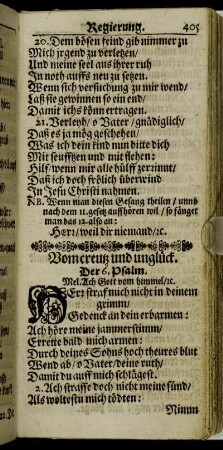 Regierung. 405
20. Dem bösen feind gib nimmer zu
Mich jrgend zu verletzen/
Und meine seel aus ihrer ruh
In noth auffs neu zu setzen.
Wenn sich versuchung zu mir wend/
Laß sie gewinnen so ein end/
Damit ichs könn ertragen.
21. Verleih/ o Vater/ gnädiglich/
Daß es ja mög geschehen/
Was ich dein kind nun bitte dich
Mit seufftzen und mit flehen:
Hilf/ wenn mir alle hülff zerrinnt/
Daß ich doch frölich überwind
In Jesu Christi nahmen.
NB. Wenn man diesen Gesang theilen/ unnd
nach dem 11. gesetz auffhören wil/ so fänget
man das 12. also an:
Herr/ weil dir niemand/ ꝛc.
Vom creutz und unglück.
Der 6. Psalm.
Mel. Ach Gott vom himmel/ ꝛc.
HErr straf mich nicht in deinem
grimm/
Gedenck an dein erbarmen:
Ach höre meine jammerstimm/
Errette bald mich armen:
Durch deines Sohns hoch theures blut
Wend ab/ o Vater/ deine ruth/
Damit du auff mich schlägest.
2. Ach straffe doch nicht meine sünd/
Als woltestu mich tödten:
Nimm